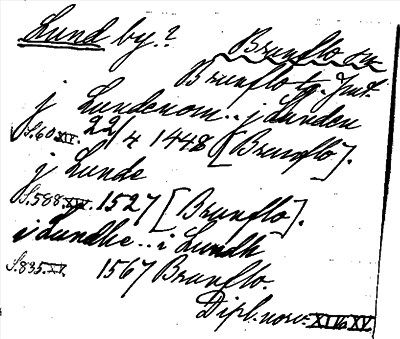 Lund by.?
Brunflo sn
Brunflo tg. Jmtl.
j Lundenom.. j Lunden
S.60 XIV. 22/4 1448 [Brunflo].
j Lunde
S.588 XIV. 1527 [Brunflo].
i Lundhe.. i Lundh
S.835.XV. 1567 Brunflo.
Dipl. norv. XIV o XV.